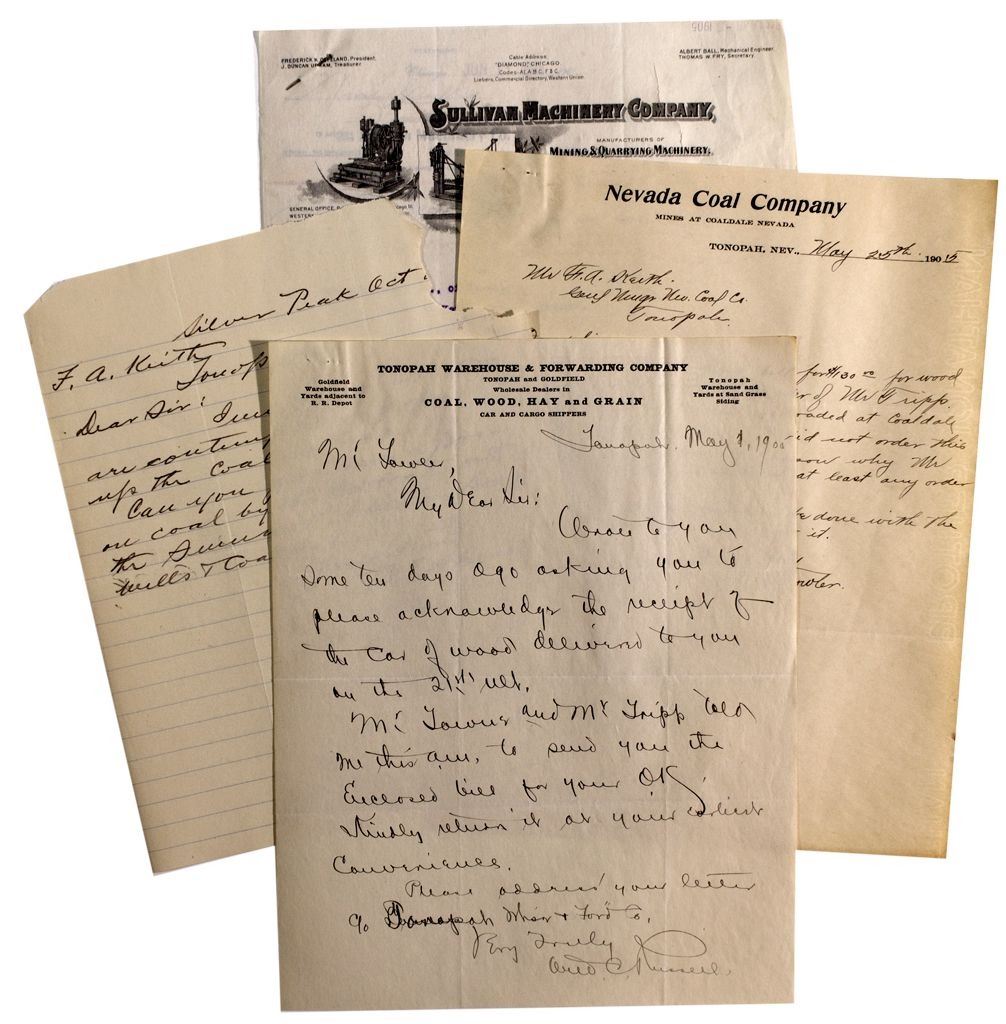 FREDERICK K. COPELAND, President.
J. DUNCAN UPHAM, Treasurer.
Cable Address,
"DIAMOND," CHICAGO
Codes: A.I, A.B.C, F.B.C.
Liebers, Commercial Directory, Western Union.
ALBERT BALL, Mechanical Engineer.
THOMAS W. FRY, Secretary.
SULLIVAN MACHINERY COMPANY,
MANUFACTURERS OF
MINING & QUARRYING MACHINERY.
GENERAL OFFICE,
WESTERN
Nevada Coal Company
MINES AT COALDALE NEVADA
TONOPAH, NEV., May 25th. 1905
Mr F. A. Keith.
Genl Mngr Nev. Coal Co.
Tonopah.
for $130 00 for wood
of Mr Tripp.
loaded at Coaldale
did not order this
why Mr
at least any order
be done with the
it.
Silver Peak Oct
F. A. Keith
Tonop
Dear Sir:
are contem
up the Coal
Can you
on coal by
the
Wells
TONOPAH WAREHOUSE & FORWARDING COMPANY
TONOPAH and GOLDFIELD
Wholesale Dealers in
COAL, WOOD, HAY and GRAIN
CAR AND CARGO SHIPPERS
Goldfield
Warehouse and
Yards adjacent to
R. R. Depot
Tonopah
Warehouse and
Yards at Sand Grass
Siding
Tonopah. May 1, 1905
Mr Lowler,
My Dear Sir:
Wrote to you
Some ten days ago asking you to
please acknowledge the receipt of
the Car of wood delivered to you
on the 21st ult.
Mr and Mr Tripp told
me this am, to send you the
Enclosed bill for your OK.
Kindly return it at your earliest
Convenience.
Please address your letter
c/o Tonopah Whse & Ford Co,
Very Truly
C. Russell.